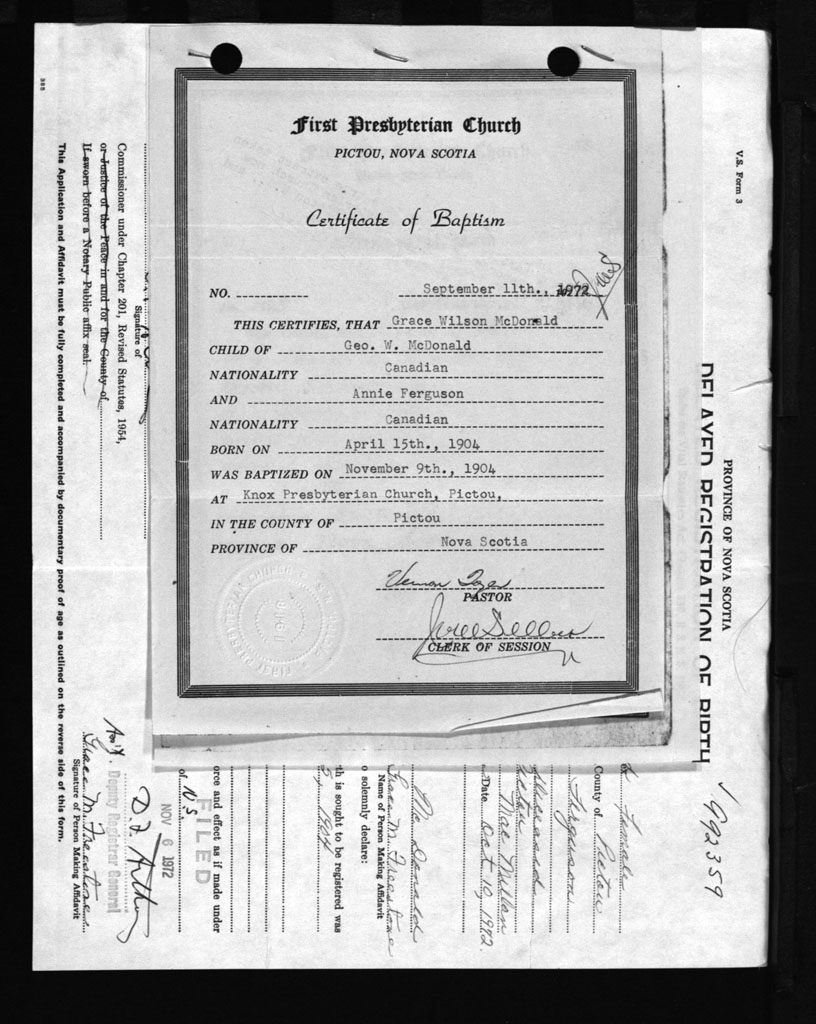 First Presbyterian Church
PICTOU, NOVA SCOTIA
Certificate of Baptism
NO. September 11th., 1972
THIS CERTIFIES, THAT Grace Wilson McDonald
CHILD OF Geo. W. McDonald
NATIONALITY Canadian
AND Annie Ferguson
NATIONALITY Canadian
BORN ON April 15th., 1904
WAS BAPTIZED ON November 9th., 1904
AT Knox Presbyterian Church, Pictou,
IN THE COUNTY OF Pictou
PROVINCE OF Nova Scotia
PASTOR
CLERK OF SESSION
V.S. Form 3
PROVINCE OF NOVA SCOTIA
DELAYED REGISTRATION OF BIRTH
992359
Female
County of Pictou
Ferguson
deceased
Mac Millan
Date Oct 10, 1972.
Mc Donald
Grace M. Freestone
Name of Person Making Affidavit
o solemnly declare:
th is sought to be registered was
1904
orce and effect as if made under
of N.S.
FILED
NOV 6 1972
D. F. Arthur
Deputy Registrar General
Grace M. Freestone
Signature of Person Making Affidavit
Signature of
Commissioner under Chapter 201, Revised Statutes, 1954,
or Justice of the Peace in and for the County of
If sworn before a Notary Public affix seal.
This Application and Affidavit must be fully completed and accompanied by documentary proof of age as outlined on the reverse side of this form.
385